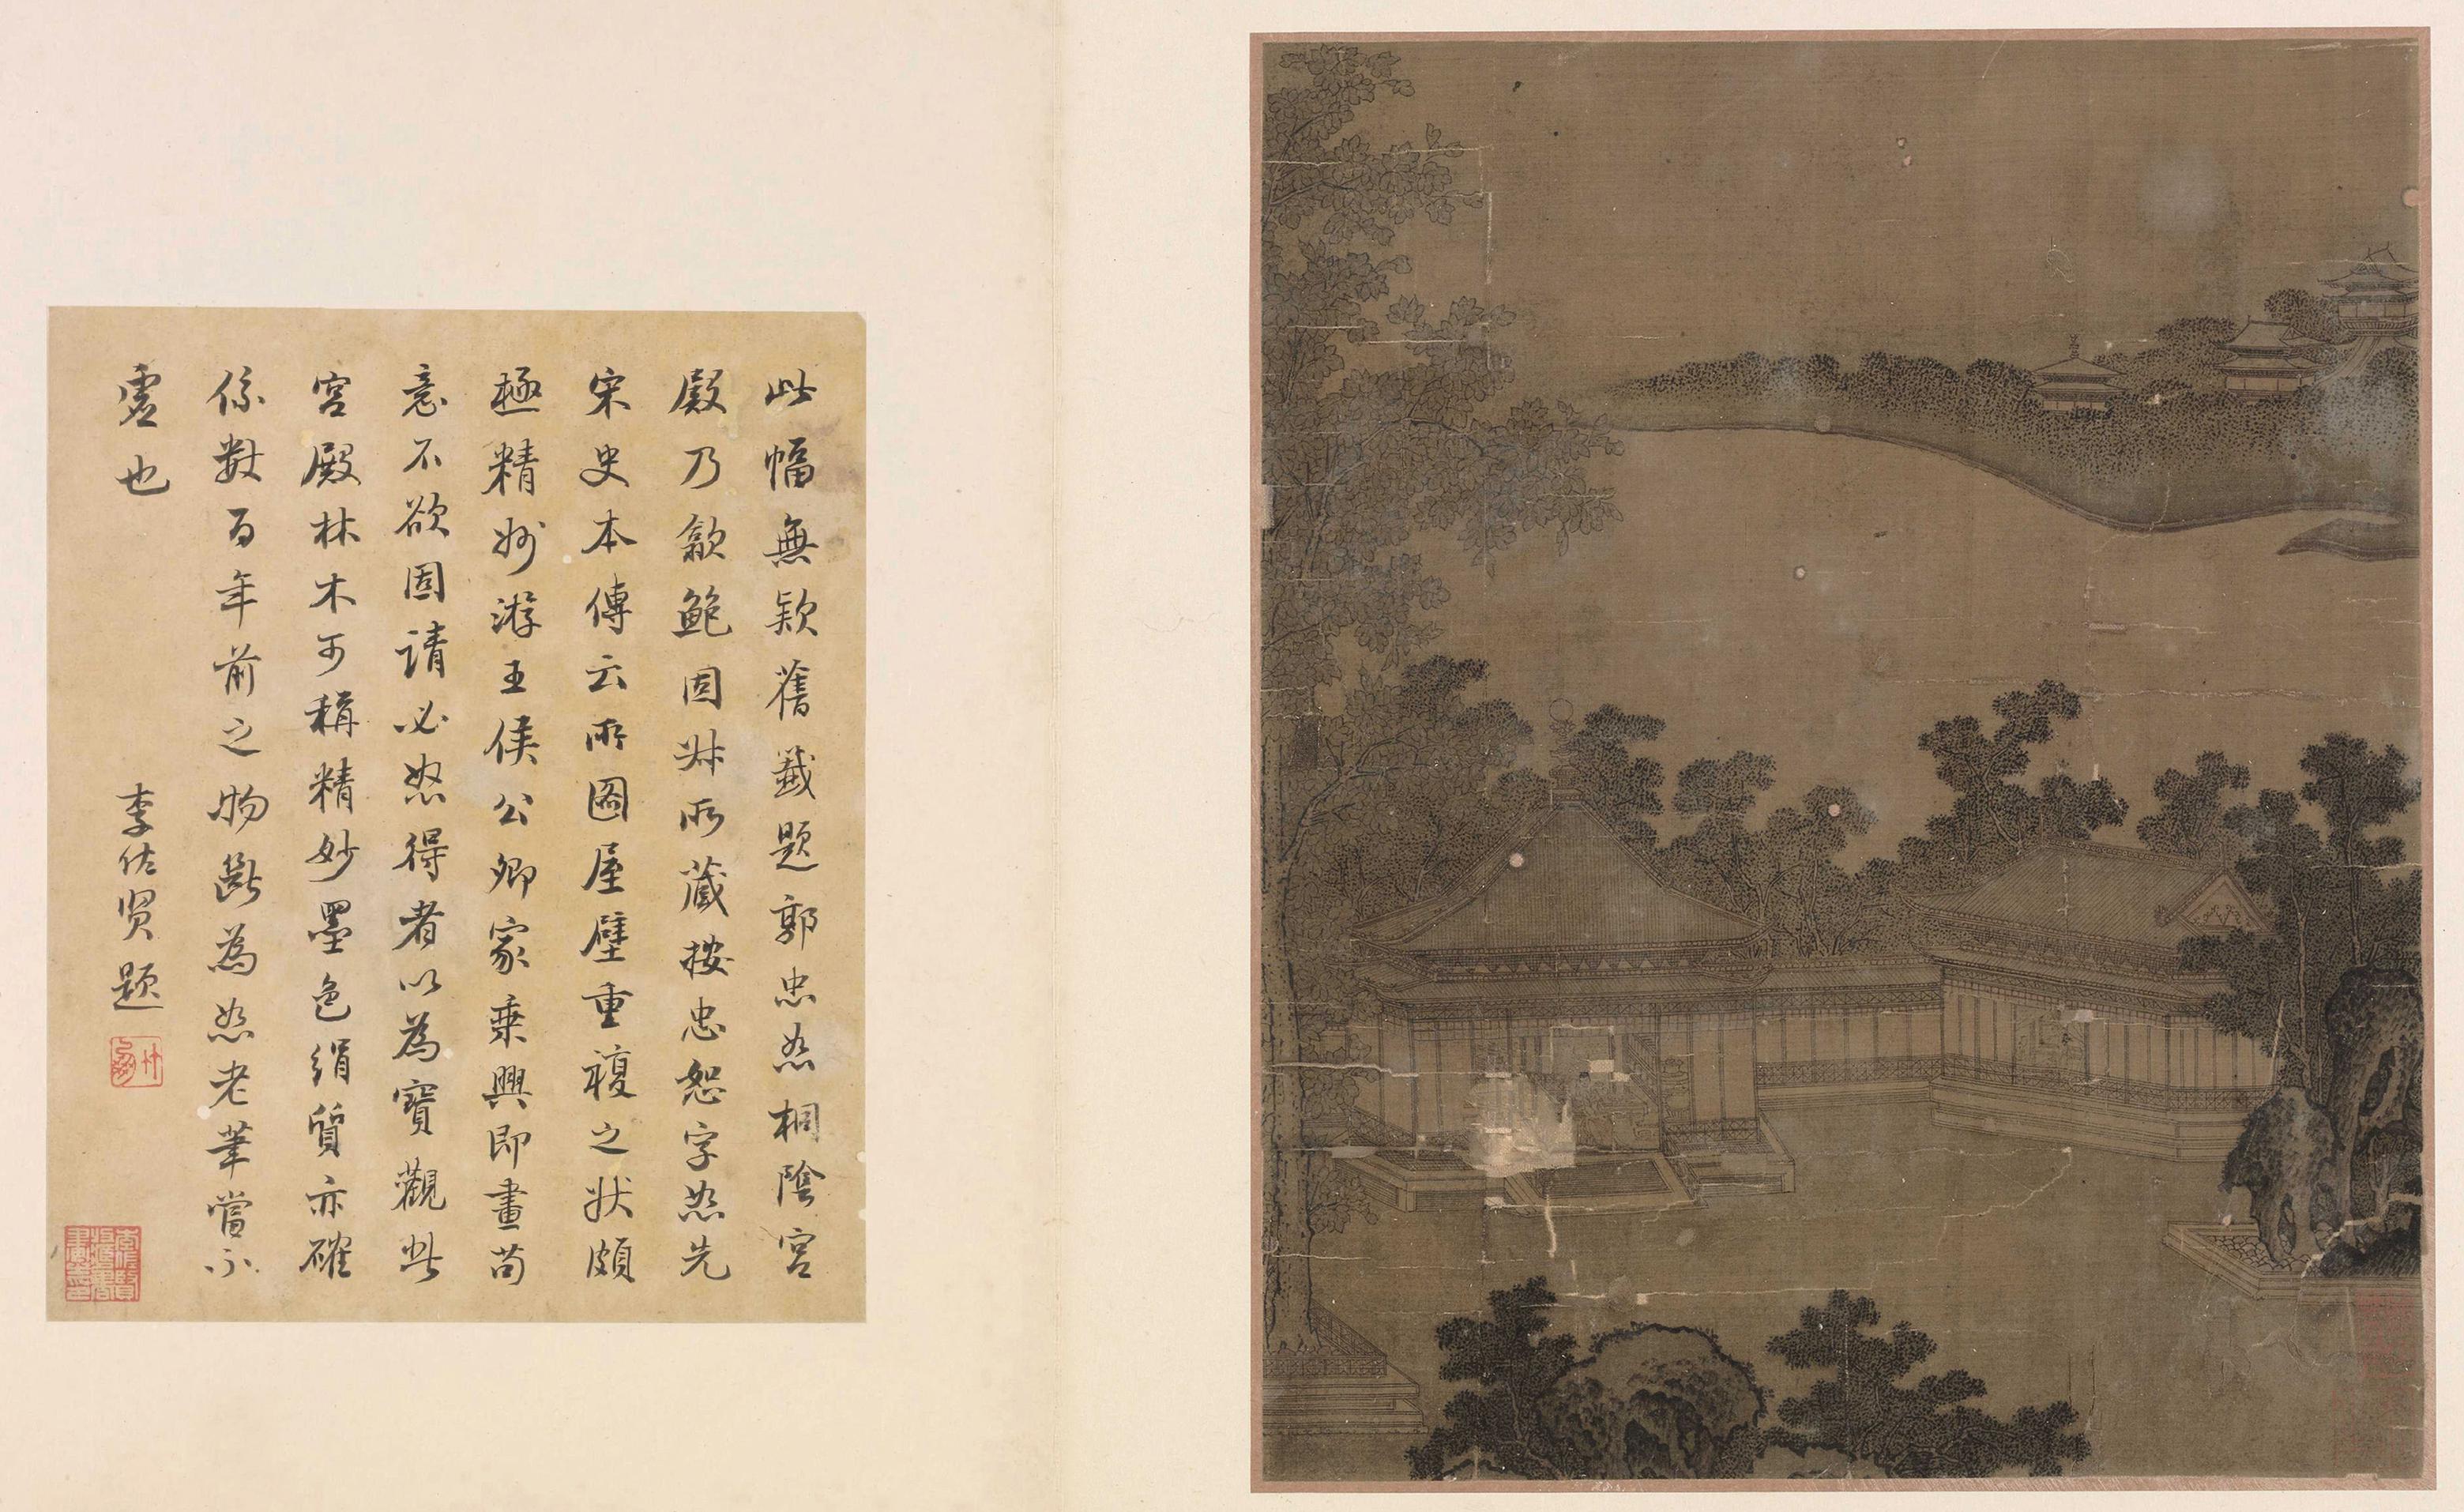 此幅無欵舊籤題郭忠恕桐陰宮
殿乃歙鮑固叔所藏按忠恕字恕先
宋史本傳云所圖屋壁重複之狀頗
極精妙游王侯公卿家乗興即畫苟
意不欲固請必怒得者以為寶觀此
宮殿林木可稱精妙墨色絹質亦確
係數百年前之物斷為恕老筆當不
虛也
李佐贤題
竹朋
李佐賢收藏書畫之印